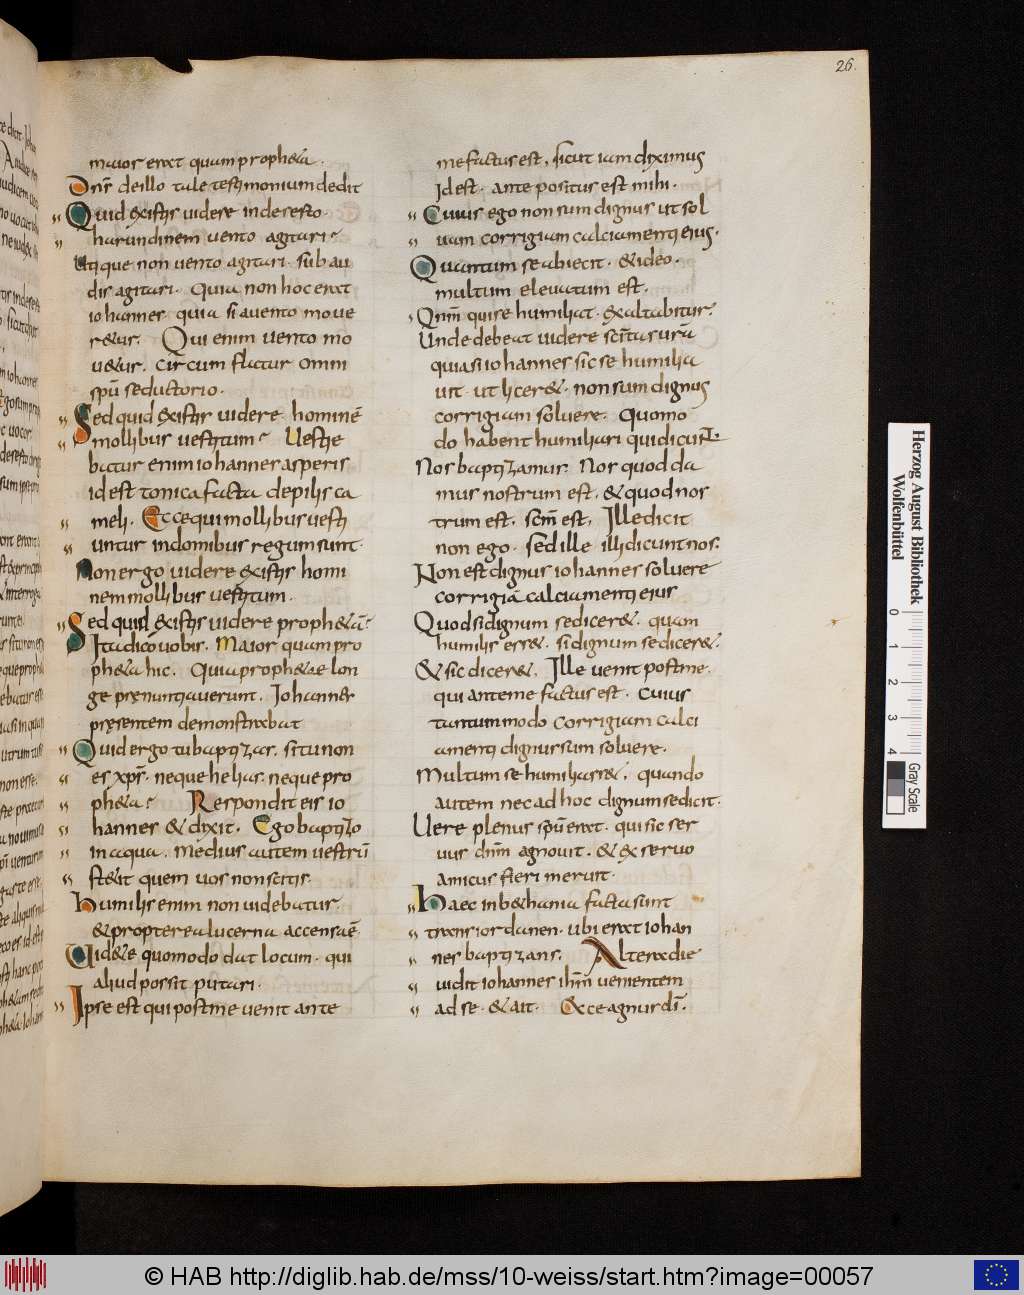 26.
maior erat quam propheta.
Dns de illo tale testimonium dedit
Quid existis videre in deserto.
harundinem vento agitari?
Utique non vento agitari. sub au
dis agitari. Quia non hoc erat
iohannes quia si a vento move
retur. Qui enim vento mo
vetur. circum flatur omni
spū seductorio.
Sed quid existis videre hominē
mollibus vestitum? Vestie
batur enim iohannes asperis
id est tonica facta de pilis ca
meli. Ecce qui mollibus vesti
untur in domibus regum sunt.
Non ergo videre existis homi
nem mollibus vestitum.
Sed quid existis videre prophetā?
Ita dico vobis. Maior quam pro
pheta hic. Quia prophetae lon
ge pręnuntiaverunt. Iohannes
pręsentem demonstrabat
Quid ergo tu baptizas. si tu non
es xps. neque helias. neque pro
pheta? Respondit eis io
hannes & dixit. Ego baptizo
in aqua. medius autem vestrū
stetit quem vos non scitis.
humilis enim non videbatur
& propterea lucerna accensaē.
Videte quomodo dat locum. qui
aliud possit putari.
Ipse est qui post me venit ante
me factus est, sicut iam diximus
Id est. ante positus est mihi.
Cuius ego non sum dignus ut sol
vam corrigiam calciamenti eius.
Quantum se abiecit. & ideo.
multum elevatum est.
Qnm qui se humiliat. exaltabitur.
Unde debeat videre scītas urā
quia si iohannes sic se humilia
vit. ut licer&. non sum dignus
corrigiam solvere. Quomo
do habent humiliari qui dicunt
Nos baptizamus. Nos quod da
mus nostrum est. & quod nos
trum est. scm est. Ille dicit
non ego. sed ille illi dicunt nos.
Non est dignus iohannes solvere
corrigiā calciamenti eius
Quod si dignum se dicer&. quam
humilis ess&. si dignum se dicer&.
& sic dicer&. Ille venit post me.
qui ante me factus est. Cuius
tantummodo corrigiam calci
amenti dignus sum solvere.
Multum se humiliass&. quando
autem nec ad hoc dignum se dicit.
Vere plenus spū erat. qui sic ser
vus dnm agnovit. & ex servo
amicus fieri meruit.
haec in bethania facta sunt
trans iordanen. ubi erat iohan
nes baptizans. Altera die
vidit iohannes ihm venientem
ad se. & ait. Ecce agnus dī.
Herzog August Bibliothek
Wolfenbüttel
0 1 2 3 4
Gray Scale
© HAB http://diglib.hab.de/mss/10-weiss/start.htm?image=00057